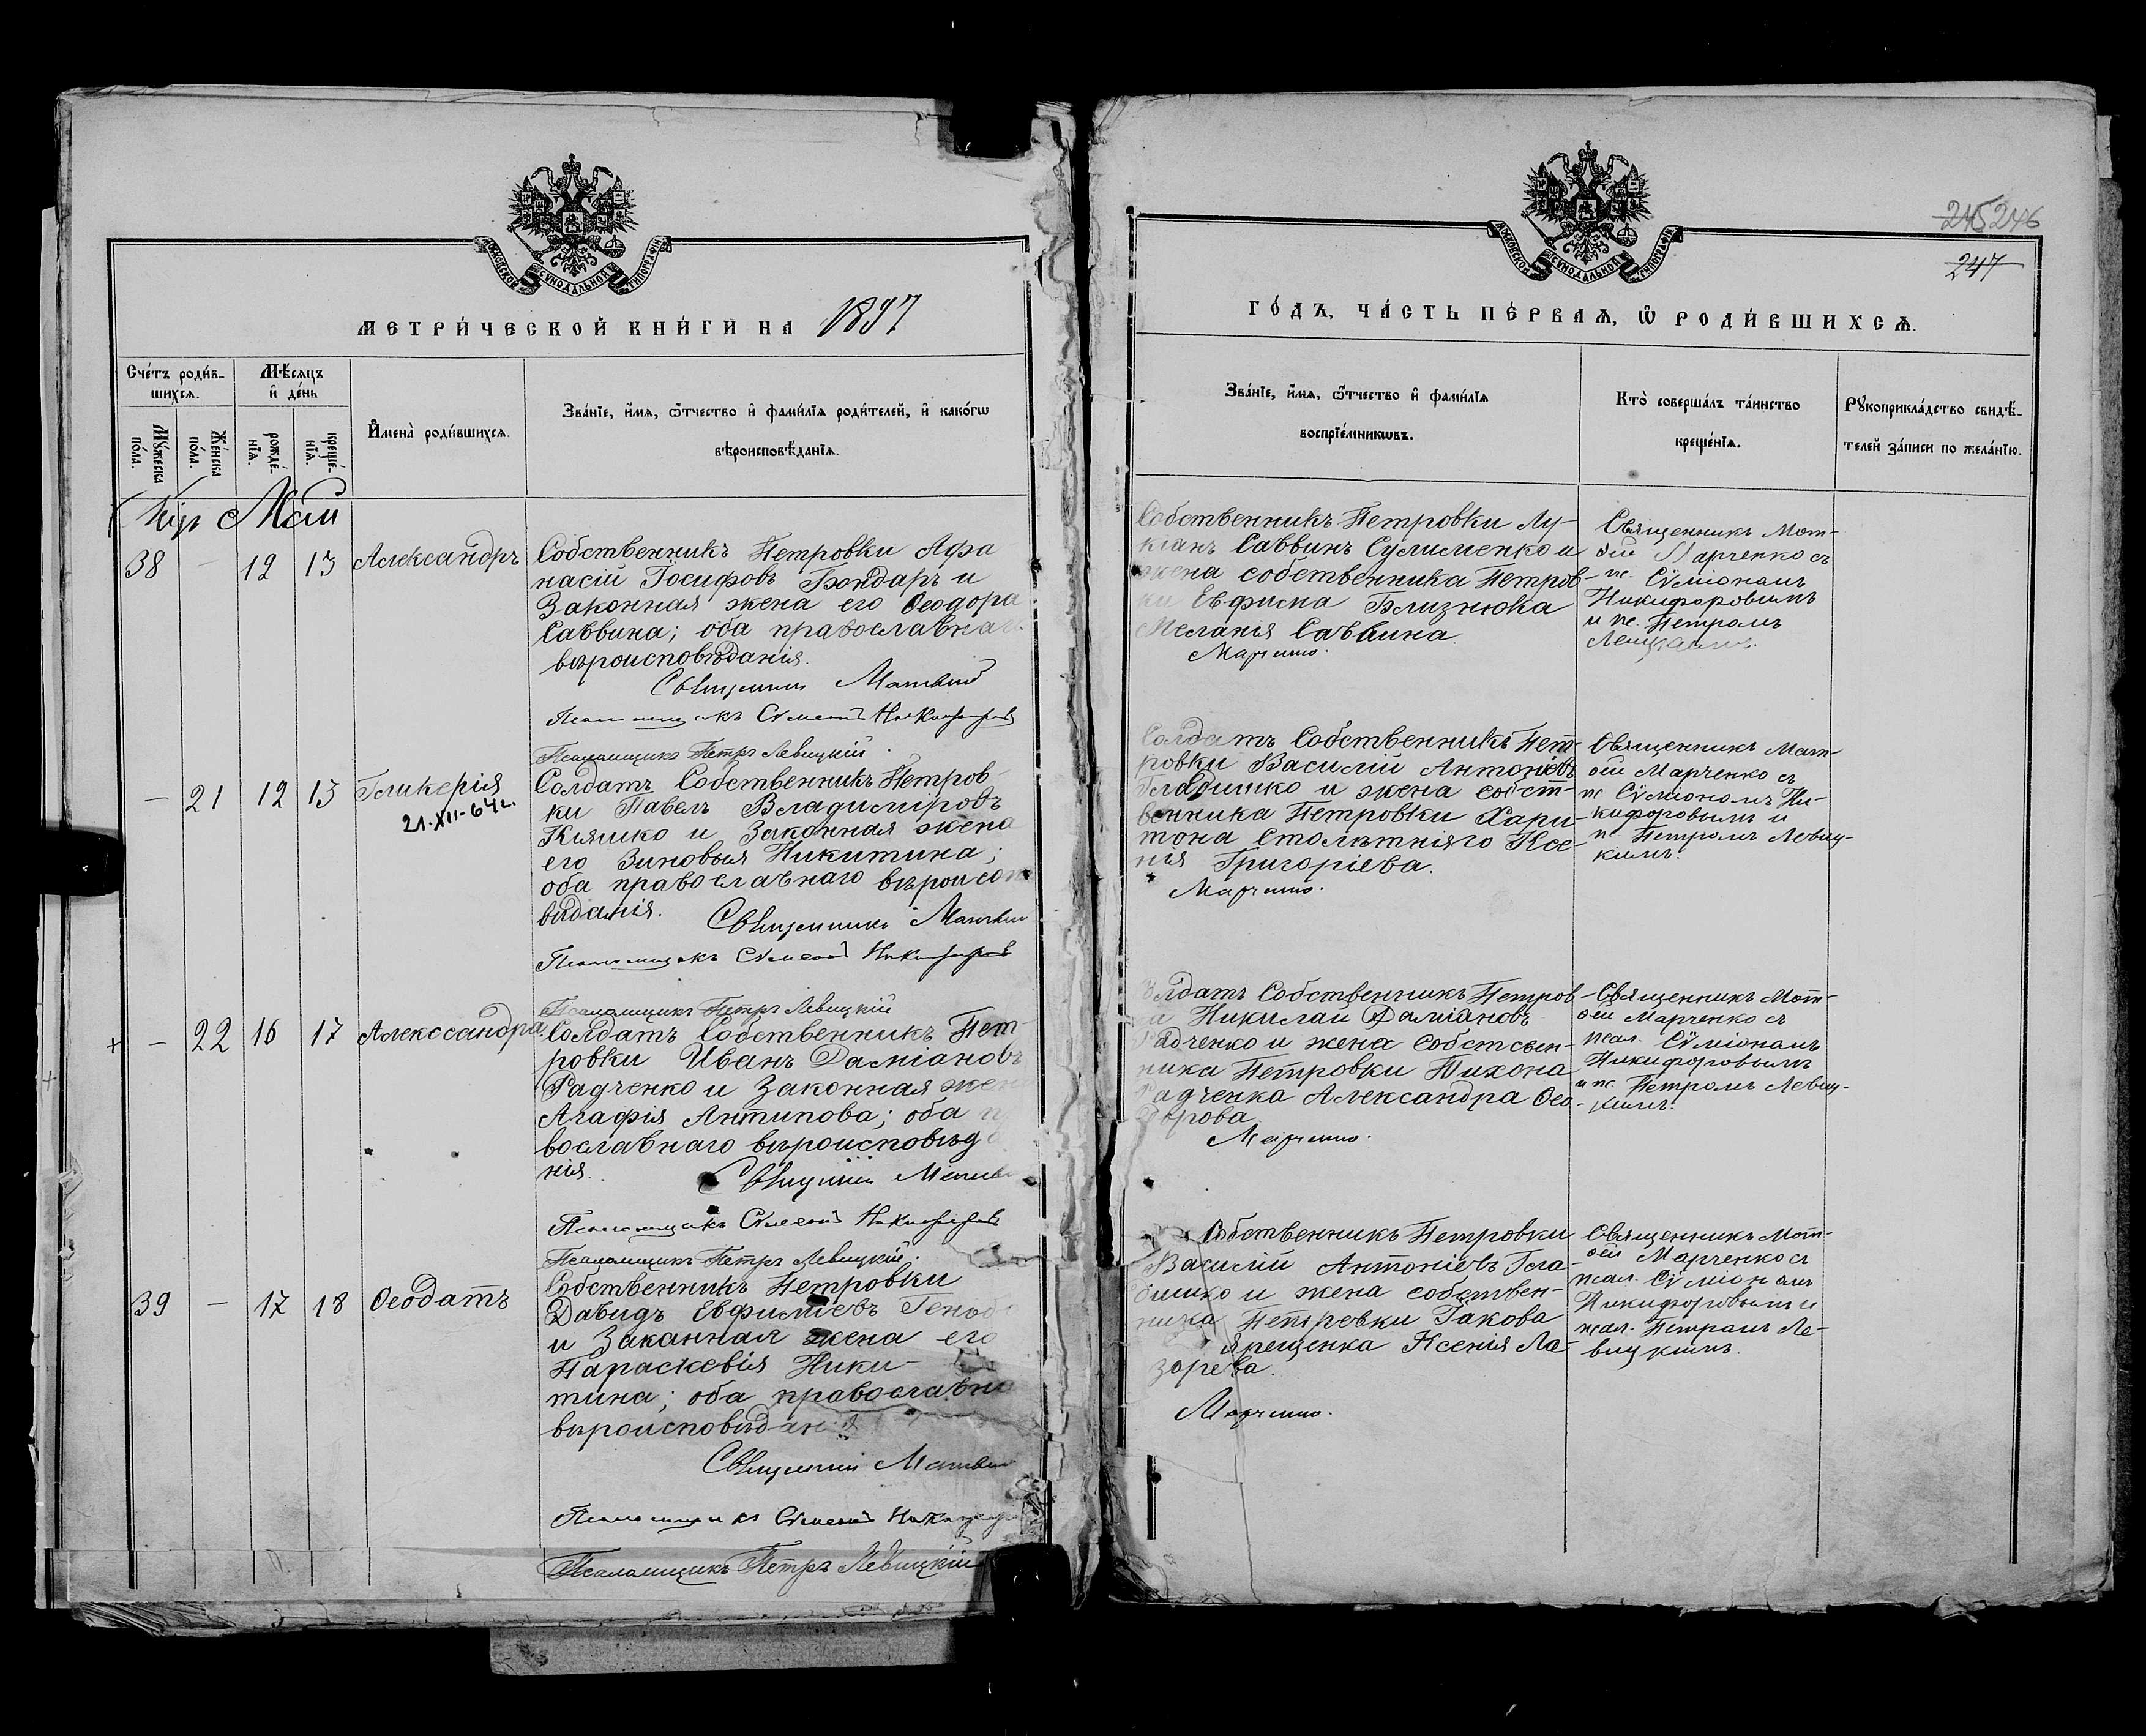 МОСКОВСКОЙ СѴНОДАЛЬНОЙ ТИПОГРАФІИ
МЕТРИ́ЧЕСКОЙ КНИ́ГИ НА 1897
Сче́тъ роди́в-
шихсѧ.
Мѣ́сѧцъ
и҆ де́нь
И҆мена̀ роди́вшихсѧ.
Зва́нїе, и҆́мѧ, ѻ҆́тчество и҆ фами́лїѧ роди́телей, и҆ како́гѡ
вѣроисповѣ́данїѧ.
Мꙋ́жеска
по́ла.
Же́нска
по́ла.
рожде́-
нїѧ.
креще́-
нїѧ.
Май
38 - 12 13 Александръ
Собственникъ Петровки Афа
насій Іосифовъ Бондаръ и
Законная жена его Ѳеодора
Саввина; оба православнаг
вѣроисповѣданія.
Священникъ Матвій
Псаломщикъ Сѵмеонъ Никифоровъ
Псаломщикъ Петръ Левицкій.
- 21 12 13 Гликерія
21.XII-64г.
Солдатъ Собственникъ Петров-
ки Павелъ Владиміровъ
Кіяшко и Законная жена
его Зиновыя Никитина;
оба православнаго вѣроисп
виданія.
Священникъ Матвій
Псаломщикъ Сѵмеонъ Никифоровъ
Псаломщикъ Петръ Левицкій
+ - 22 16 17 Алекссандра
Солдатъ Собственникъ Пет-
ровки Иванъ Даміановъ
Радченко и Законная жен
Агафія Антипова; оба п
вославнаго вѣроисповѣд
нія.
Священникъ Матвій
Псаломщикъ Сѵмеонъ Никифоровъ
Псаломщикъ Петръ Левицкій.
39 - 17 18 Ѳеодотъ
Собственникъ Петровки
Давидъ Евфиміевъ
и Законная жена его
Параскевія Ники-
тина; оба православна
вѣроисповѣдан
Священникъ Матвій
Псаломщикъ Сѵмеонъ Никифоров
Псаломщикъ Петръ Левицкій
245 246
247
МОСКОВСКОЙ СѴНОДАЛЬНОЙ ТИПОГРАФІИ
ГО́ДЪ, ЧА́СТЬ ПЕ́РВАѦ, Ѡ҆ РОДИ́ВШИХСѦ.
Зва́нїе, и҆́мѧ, ѻ҆́тчество и҆ фами́лїѧ
воспрїе́мникѡвъ.
Кто̀ соверша́лъ та́инство
креще́нїѧ.
Рꙋкоприкла́дство свидѣ́-
телей за́писи по жела́нїю.
Собственникъ Петровки Лу-
кіанъ Саввинъ Сулименко и
жена собственника Петров-
ки Евфима Близнюка
Меланія Саввина.
Марченко.
Священникъ Мат-
ѳей Марченко съ
пс. Сѵміономъ
Никифоровымъ
и пс. Петромъ
Левицкимъ.
Солдатъ Собственникъ Пет-
ровки Василій Антоніевъ
Гладишко и жена собст-
венника Петровки Хари-
тона Столѣтняго Ксе-
нія Григоріева.
Марченко.
Священникъ Мат-
ѳей Марченко съ
пс Сѵміономъ Ни-
кифоровымъ и
пс. Петромъ Левиц-
кимъ.
лдатъ Собственникъ Петров-
и Николай Даміановъ
Радченко и жена собствен-
ника Петровки Тихона
Радченка Александра Ѳео-
дорова
Марченко.
Священникъ Мат-
ѳей Марченко съ
псал. Сѵміономъ
Никифоровымъ
и пс. Петромъ Левиц-
кимъ.
Собственникъ Петровки
Василій Антоніевъ Гла-
дишко и жена собствен-
ника Петровки Іакова
Ярещенка Ксенія Ла-
зорева.
Марченко.
Священникъ Мат-
ѳей Марченко съ
псал. Сѵміономъ
Никифоровымъ и
псал. Петромъ Ле-
вицкимъ.